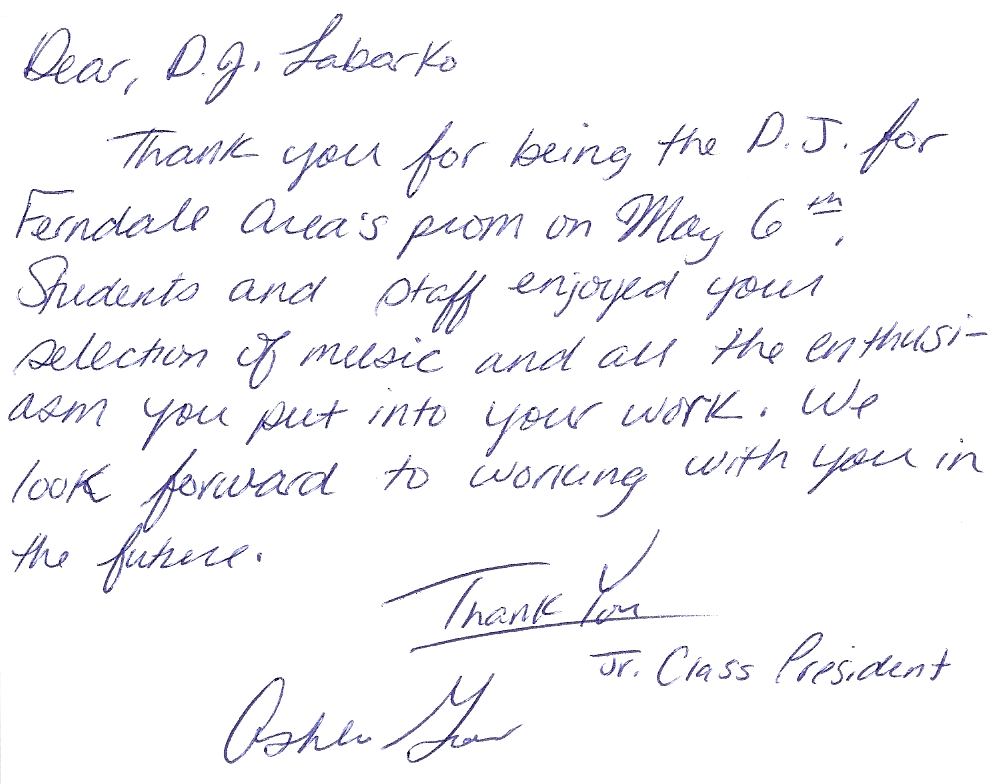 Dear, D.J. Labarko
Thank you for being the D.J. for
Ferndale Area's prom on May 6th.
Students and staff enjoyed your
selection of music and all the enthusi-
asm you put into your work. We
look forward to working with you in
the future.
Thank You
Jr. Class President